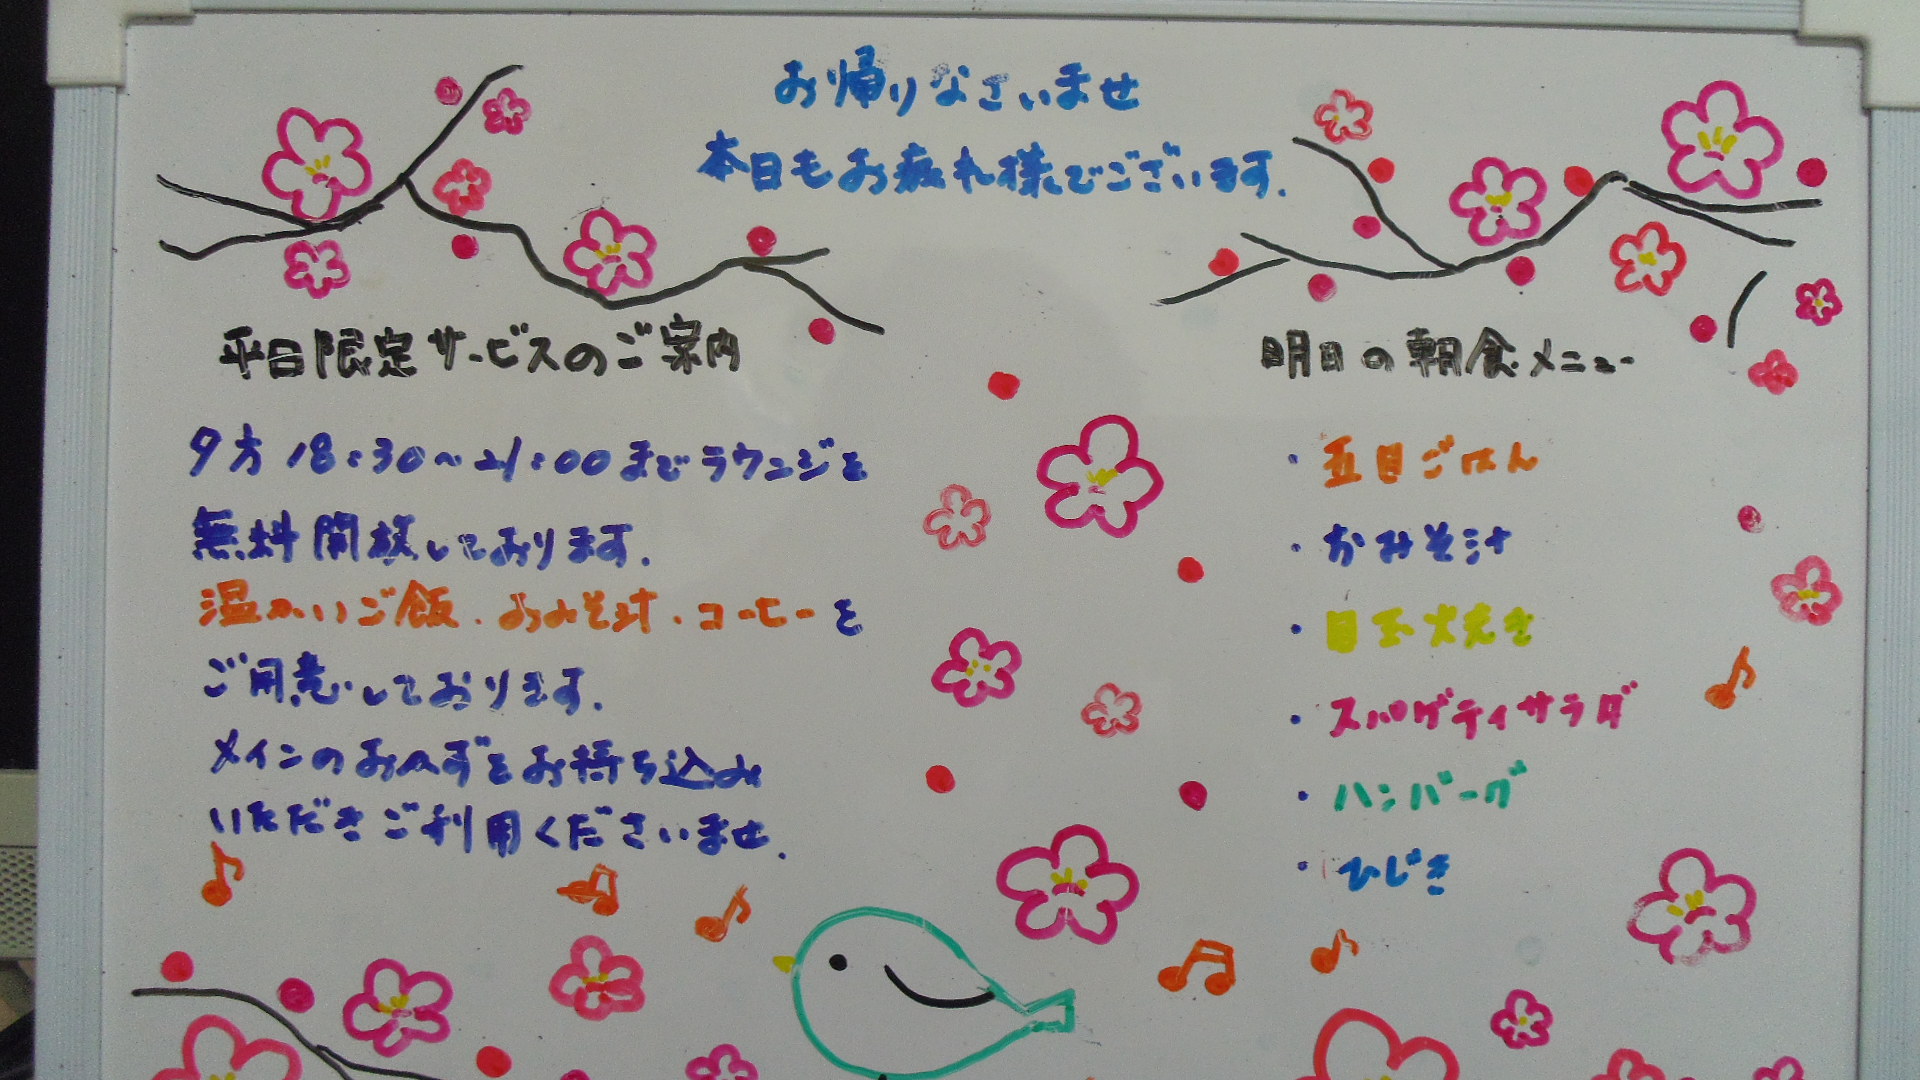 お帰りなさいませ
本日もお疲れ様でございます.
平日限定サービスのご案内
夕方18:30~21:00までラウンジを
無料開放しております.
温かいご飯.おみそ汁.コーヒーを
ご用意しております.
メインのおかずをお持ち込み
いただきご利用くださいませ.
明日の朝食メニュー
・五目ごはん
・おみそ汁
・目玉焼き
・スパゲティサラダ
・ハンバーグ
・ひじき